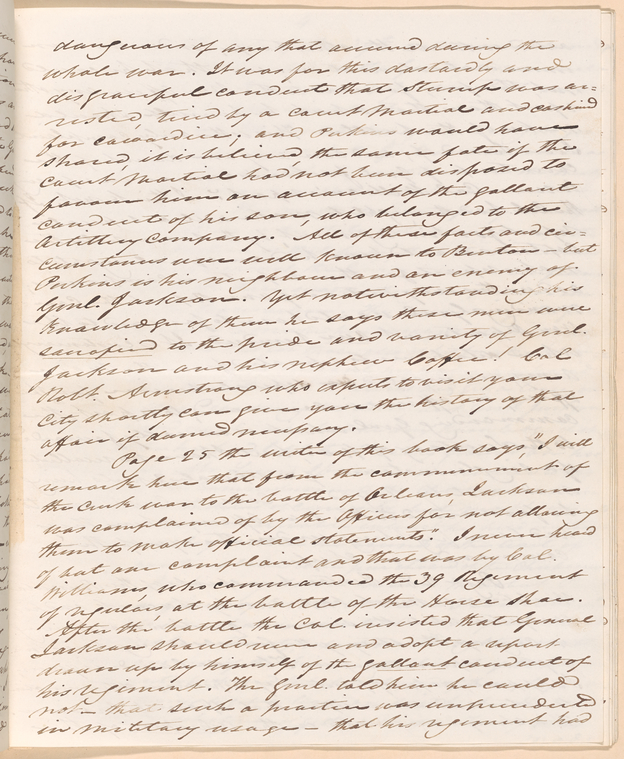 dangerous of any that occurred during the
whole war. It was for this dastardly and
disgraceful conduct that Stump was ar=
rested, tried by a court Martial and cashierd
for cowardice; and Perkins would have
shared, it is believed, the same fate if the
court Martial had not been disposed to
favour him on account of the gallant
conduct of his son, who belonged to the
Artillery company. All of these facts and cir=
cumstances were well known to Benton - but
Perkins is his neighbour and an enemy of
Genl. Jackson. Yet notwithstanding his
knowledge of them he says these men were
sacrificed to the pride and vanity of Genl.
Jackson and his nephew Coffee! Col
Robt. Armstrong who expects to visit your
City shortly can give you the history of that
affair if deemed necessary.
Page 25 the writer of this book says, "I will
remark here that from the commencement of
the Creek war to the battle of Orleans, Jackson
was complained of by the Officers for not allowing
them to make official statements". I never heard
of but one complaint and that was by Col.
Williams, who commanded the 39 Regiment
of regulars, at the battle of the Horse Shoe.
After the battle the Col. insisted that General
Jackson should receive and adopt a report
drawn up by himself of the gallant conduct of
his regiment. The Genl. told him he could
not - that such a practice was unprecedented
in military usage - that his regiment had